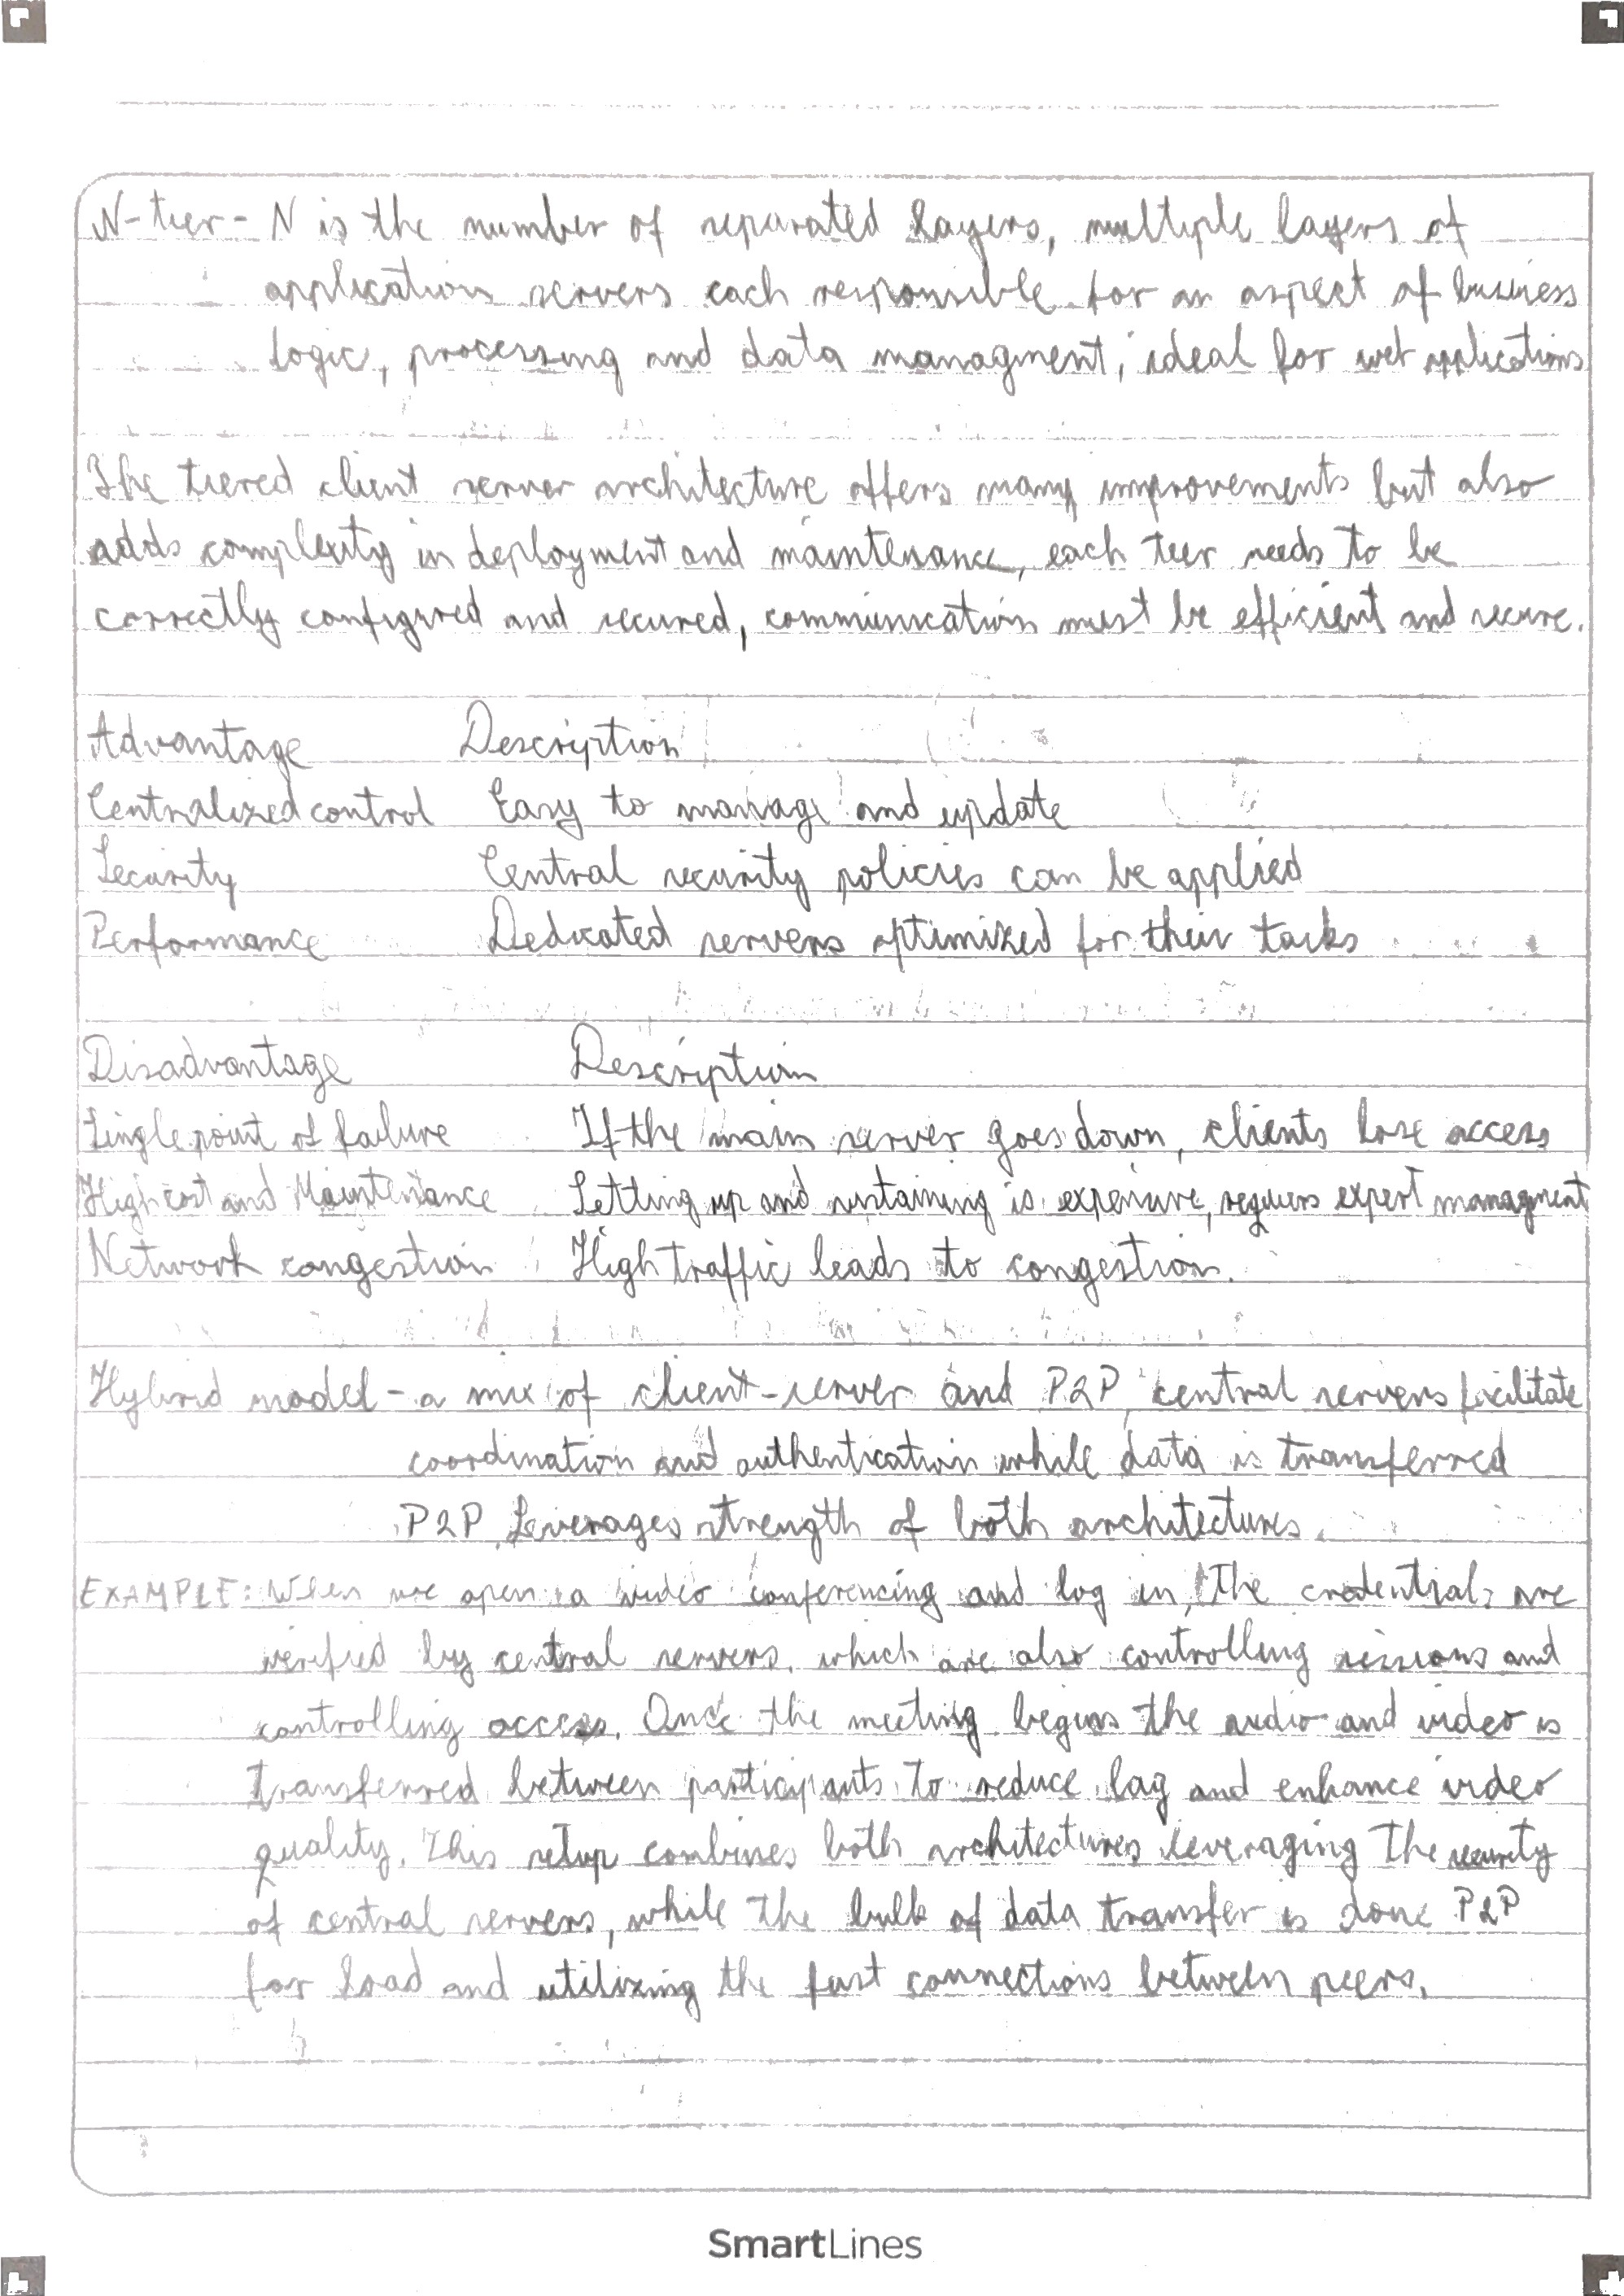 N-tier - N is the number of separated layers, multiple layers of
applications servers each responsible for an aspect of business
logic, processing and data managment, ideal for web applications
The tiered client server architecture offers many improvements but also
adds complexity in deployment and maintenance, each tier needs to be
correctly configured and secured, communications must be efficient and secure.
Advantage Description
Centralized control Easy to manage and update
Security Central security policies can be applied
Performance Dedicated servers optimized for their tasks
Disadvantage Description
Single point of failure If the main server goes down, clients lose access
High cost and Maintenance Setting up and sustaining is expensive, requiers expert managment
Network congestion High traffic leads to congestion.
Hybrid model - a mix of client-server and P2P, central servers facilitate
coordination and authentication while data is transferred
P2P. Leverages strength of both architectures.
EXAMPLE: When we open a video conferencing and log in, the credentials are
verified by central servers, which are also controlling sessions and
controlling access. Once the meeting begins the audio and video is
transferred between participants to reduce lag and enhance video
quality. This setup combines both architectures leveraging the security
of central servers, while the bulk of data transfer is done P2P
for load and utilizing the fast connections between peers.
SmartLines